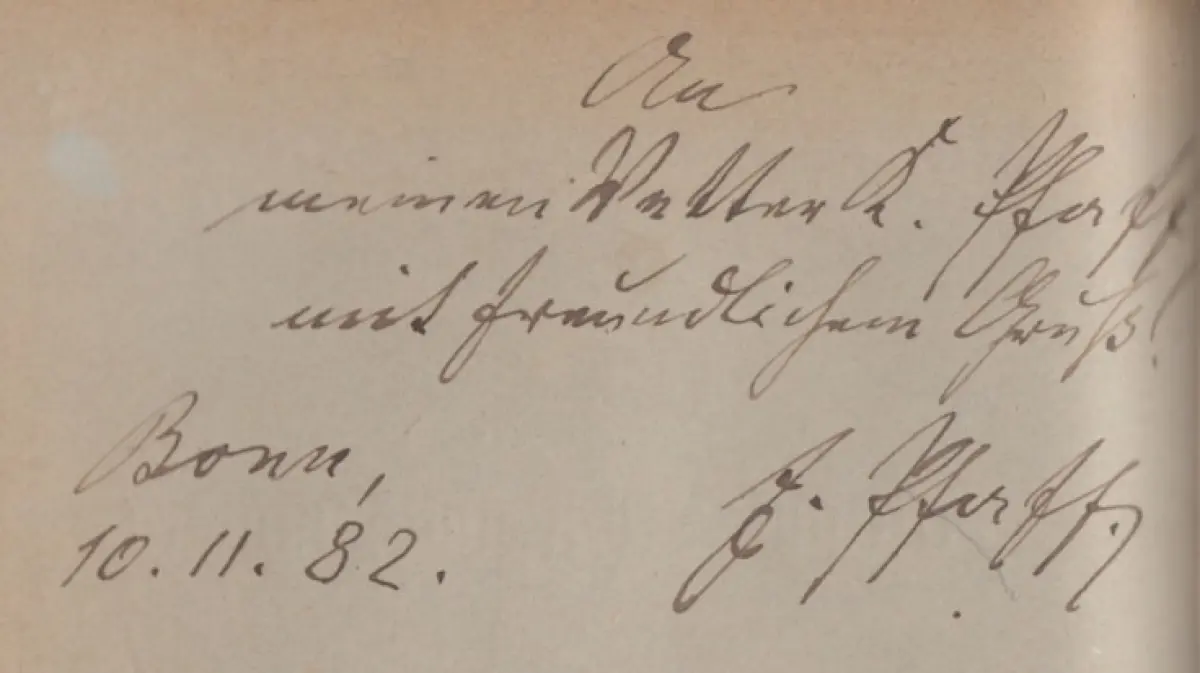 An
meinen Vetter K. Pfaff
mit freundlichem Gruß!
Bonn,
10. 11. 82.
F. Pfaff.